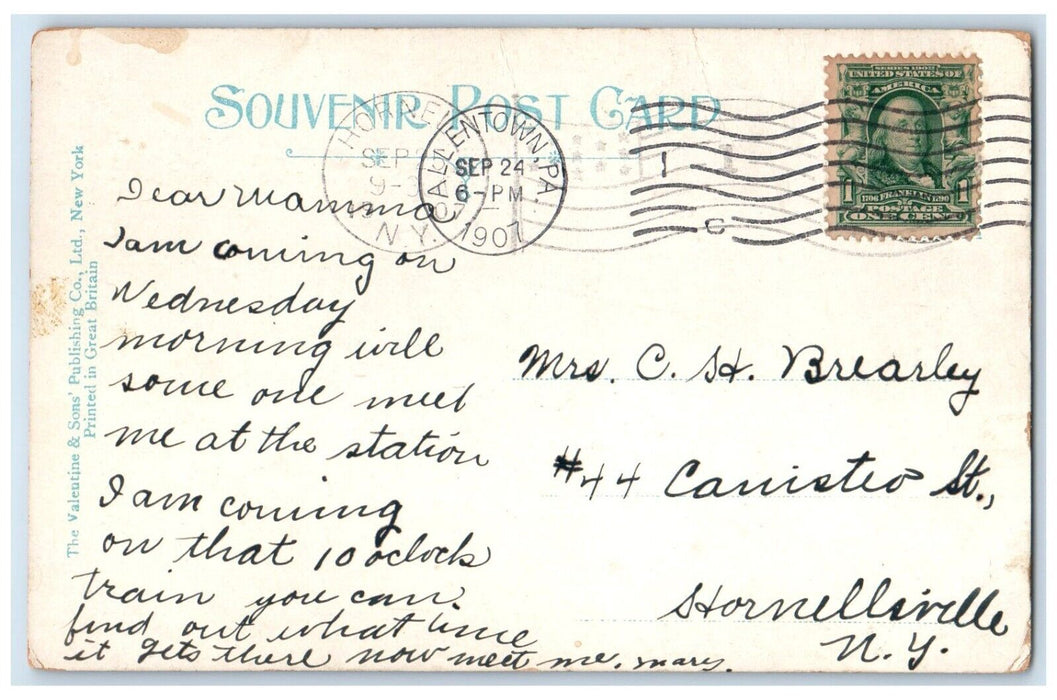 SOUVENIR POST CARD
HORNE
SEP
9-
N.Y.
ALLENTOWN, PA.
SEP 24
6-PM
1907
SERIES 1902
UNITED STATES OF
AMERICA
1 1
1706 FRANKLIN 1790
POSTAGE
ONE CENT
The Valentine & Sons' Publishing Co., Ltd., New York
Printed in Great Britain
Dear Mamma
I am coming on
Wednesday
morning will
some one meet
me at the station
I am coming
on that 10 oclock
train you can.
find out what time
it gets there now meet me. mary.
Mrs. C. H. Brearley
#44 Canisteo St.,
Hornellsville
N.Y.